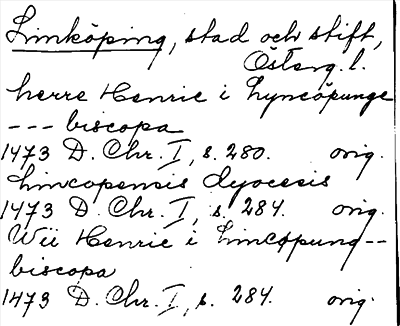 Linköping, stad och stift,
Österg. l.
herre Henric i Lyncöpunge
--- biscopa
1473 D. Chr. I, s. 280. orig.
Lincopensis dyocesis
1473 D. Chr. I, s. 284. orig.
Wii Henric i Lincøpung--
biscopa
1473 D. Chr. I, s. 284. orig.